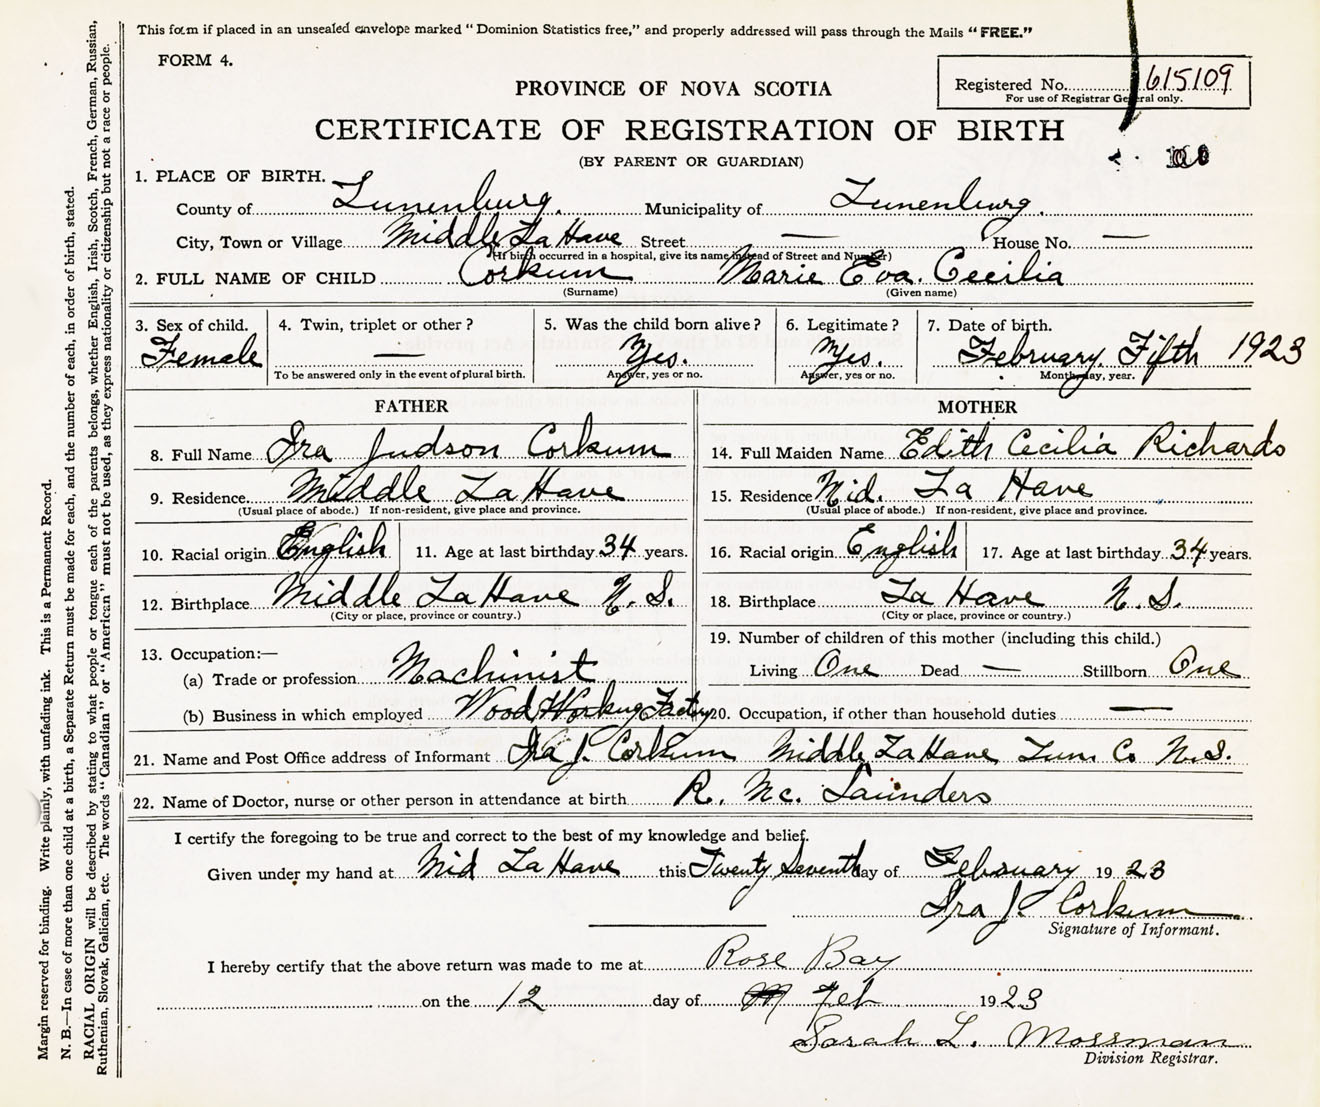 This form if placed in an unsealed envelope marked "Dominion Statistics free," and properly addressed will pass through the Mails "FREE."
FORM 4.
Registered No. 615109
For use of Registrar General only.
PROVINCE OF NOVA SCOTIA
CERTIFICATE OF REGISTRATION OF BIRTH
(BY PARENT OR GUARDIAN)
1. PLACE OF BIRTH.
County of Lunenburg. Municipality of Lunenburg.
City, Town or Village Middle La Have Street — House No. —
(If birth occurred in a hospital, give its name instead of Street and Number)
2. FULL NAME OF CHILD Corkum Marie Eva. Cecilia
(Surname) (Given name)
3. Sex of child. 4. Twin, triplet or other? 5. Was the child born alive? 6. Legitimate? 7. Date of birth.
Female — Yes. Yes. February Fifth 1923
To be answered only in the event of plural birth. Answer, yes or no. Answer, yes or no. Month, day, year.
FATHER
8. Full Name Ira Judson Corkum
9. Residence Middle La Have
(Usual place of abode.) If non-resident, give place and province.
10. Racial origin English 11. Age at last birthday 34 years.
12. Birthplace Middle La Have N. S.
(City or place, province or country.)
13. Occupation:—
(a) Trade or profession Machinist
(b) Business in which employed Wood Working Factory
MOTHER
14. Full Maiden Name Edith Cecilia Richards
15. Residence Mid. La Have
(Usual place of abode.) If non-resident, give place and province.
16. Racial origin English 17. Age at last birthday 34 years.
18. Birthplace La Have N. S.
(City or place, province or country.)
19. Number of children of this mother (including this child.)
Living One Dead — Stillborn One
20. Occupation, if other than household duties —
21. Name and Post Office address of Informant Ira J. Corkum Middle La Have Lun. Co N.S.
22. Name of Doctor, nurse or other person in attendance at birth R. Mc. Saunders
I certify the foregoing to be true and correct to the best of my knowledge and belief.
Given under my hand at Mid La Have this Twenty Seventh day of February 1923
Ira J. Corkum
Signature of Informant.
I hereby certify that the above return was made to me at Rose Bay
on the 12 day of Feb 1923
Sarah L. Mossman
Division Registrar.
Margin reserved for binding. Write plainly, with unfading ink. This is a Permanent Record.
N. B.—In case of more than one child at a birth, a Separate Return must be made for each, and the number of each, in order of birth, stated.
RACIAL ORIGIN will be described by stating to what people or tongue each of the parents belongs, whether English, Irish, Scotch, French, German, Russian,
Ruthenian, Slovak, Galician, etc. The words "Canadian" or "American" must not be used, as they express nationality or citizenship but not a race or people.